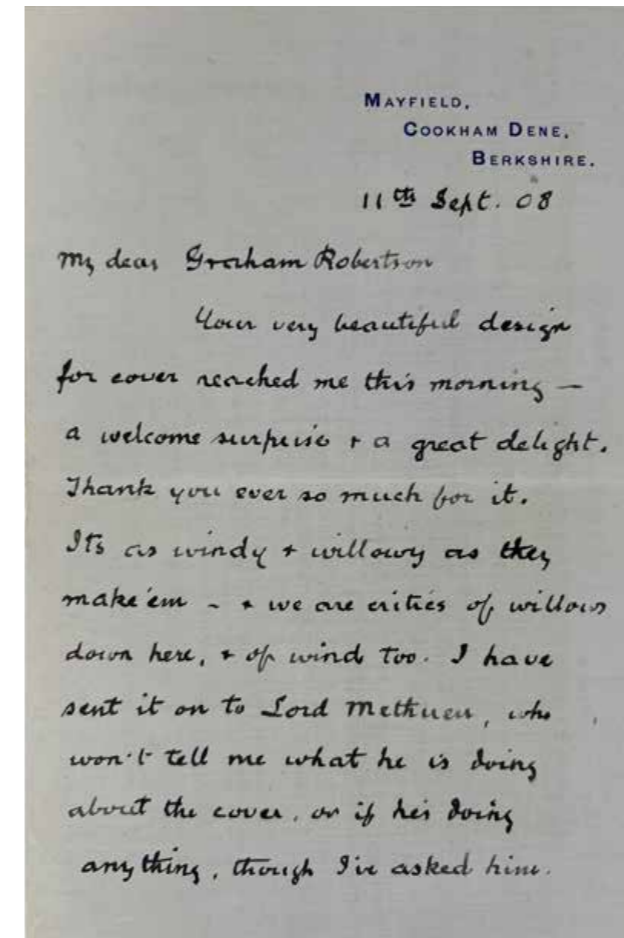 MAYFIELD,
COOKHAM DENE,
BERKSHIRE.
11th Sept. 08
My dear Graham Robertson
Your very beautiful design
for cover reached me this morning —
a welcome surprise + a great delight.
Thank you ever so much for it.
Its as windy + willowy as they
make 'em - + we are critics of willows
down here, + of wind too. I have
sent it on to Lord Methuen, who
won't tell me what he is doing
about the cover, or if he's doing
anything, though I've asked him.